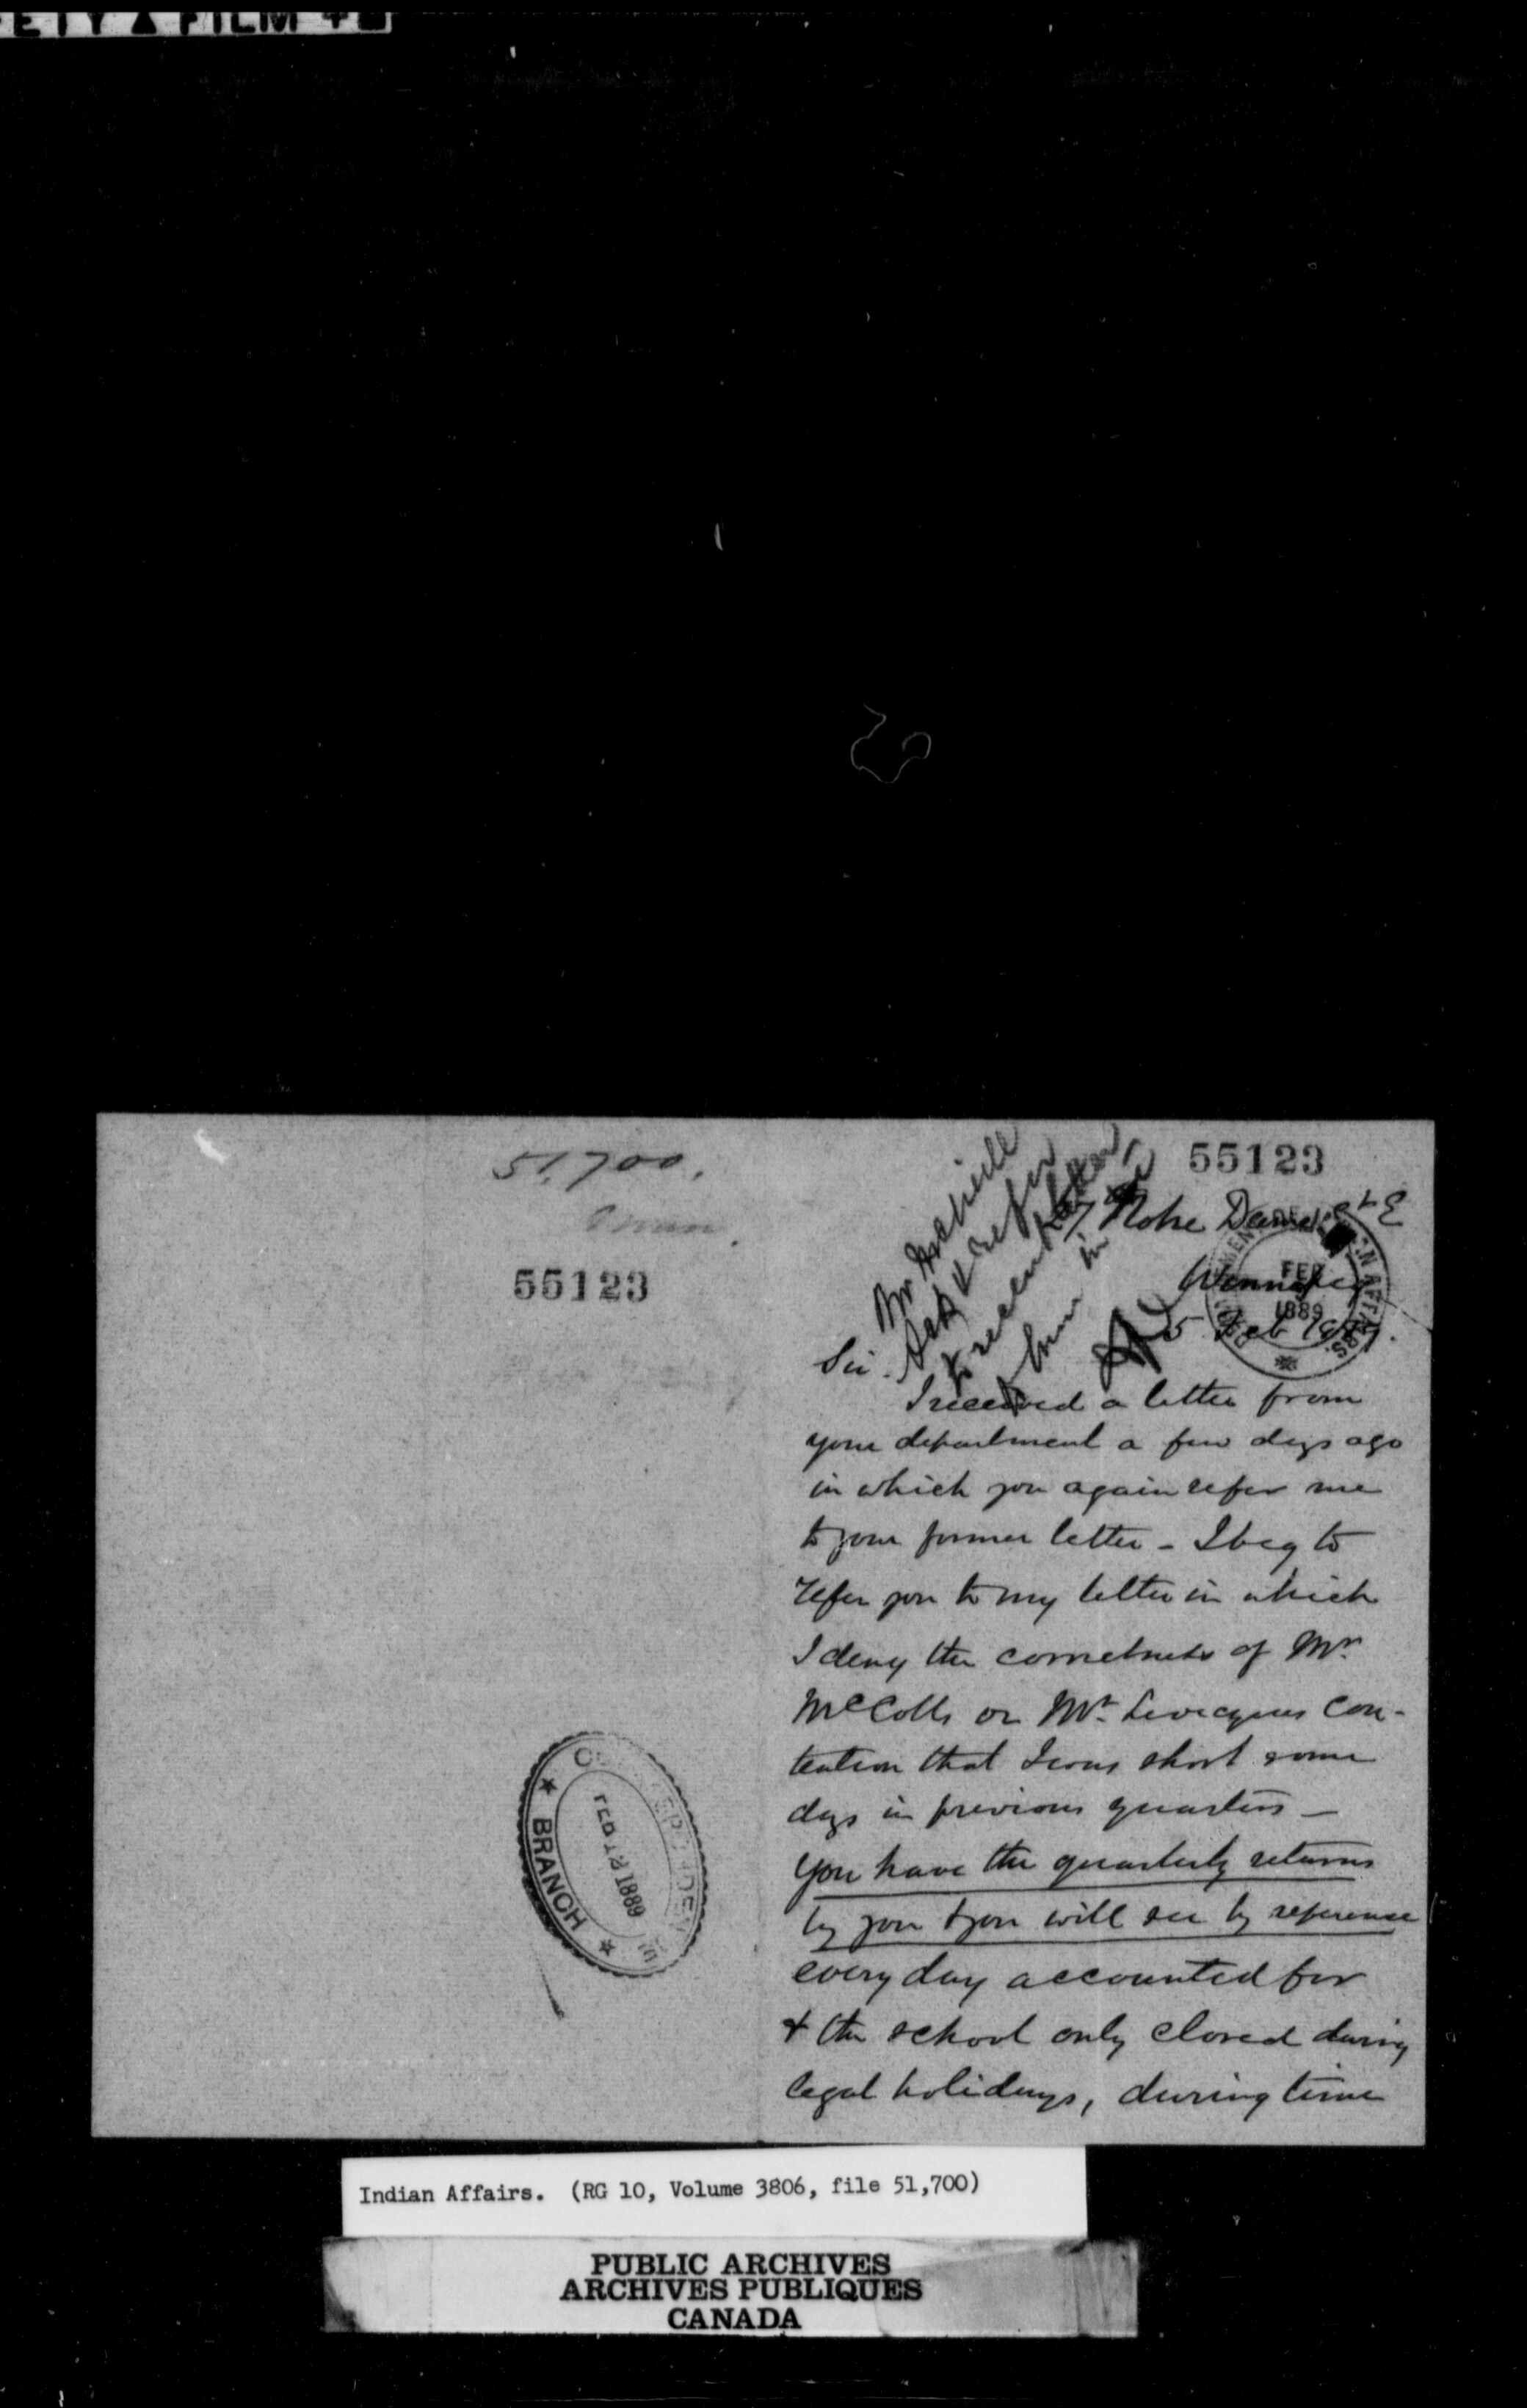 51,700.
55123
BRANCH
FEB 12 1889
55123
Mr McNeill
Ack & refer
to recent letter
Notre Dame St E
Winnipeg
5 Feb 1889.
FEB
1889
Sir.
I received a letter from
your department a few days ago
in which you again refer me
to your former letter - I beg to
refer you to my letter in which
I deny the correctness of Mr
McColls or Mr Levecques con-
tention that I was short some
days in previous quarters -
You have the quarterly returns
by you & you will see by reference
every day accounted for
& the school only closed during
legal holidays, during time
Indian Affairs. (RG 10, Volume 3806, file 51,700)
PUBLIC ARCHIVES
ARCHIVES PUBLIQUES
CANADA